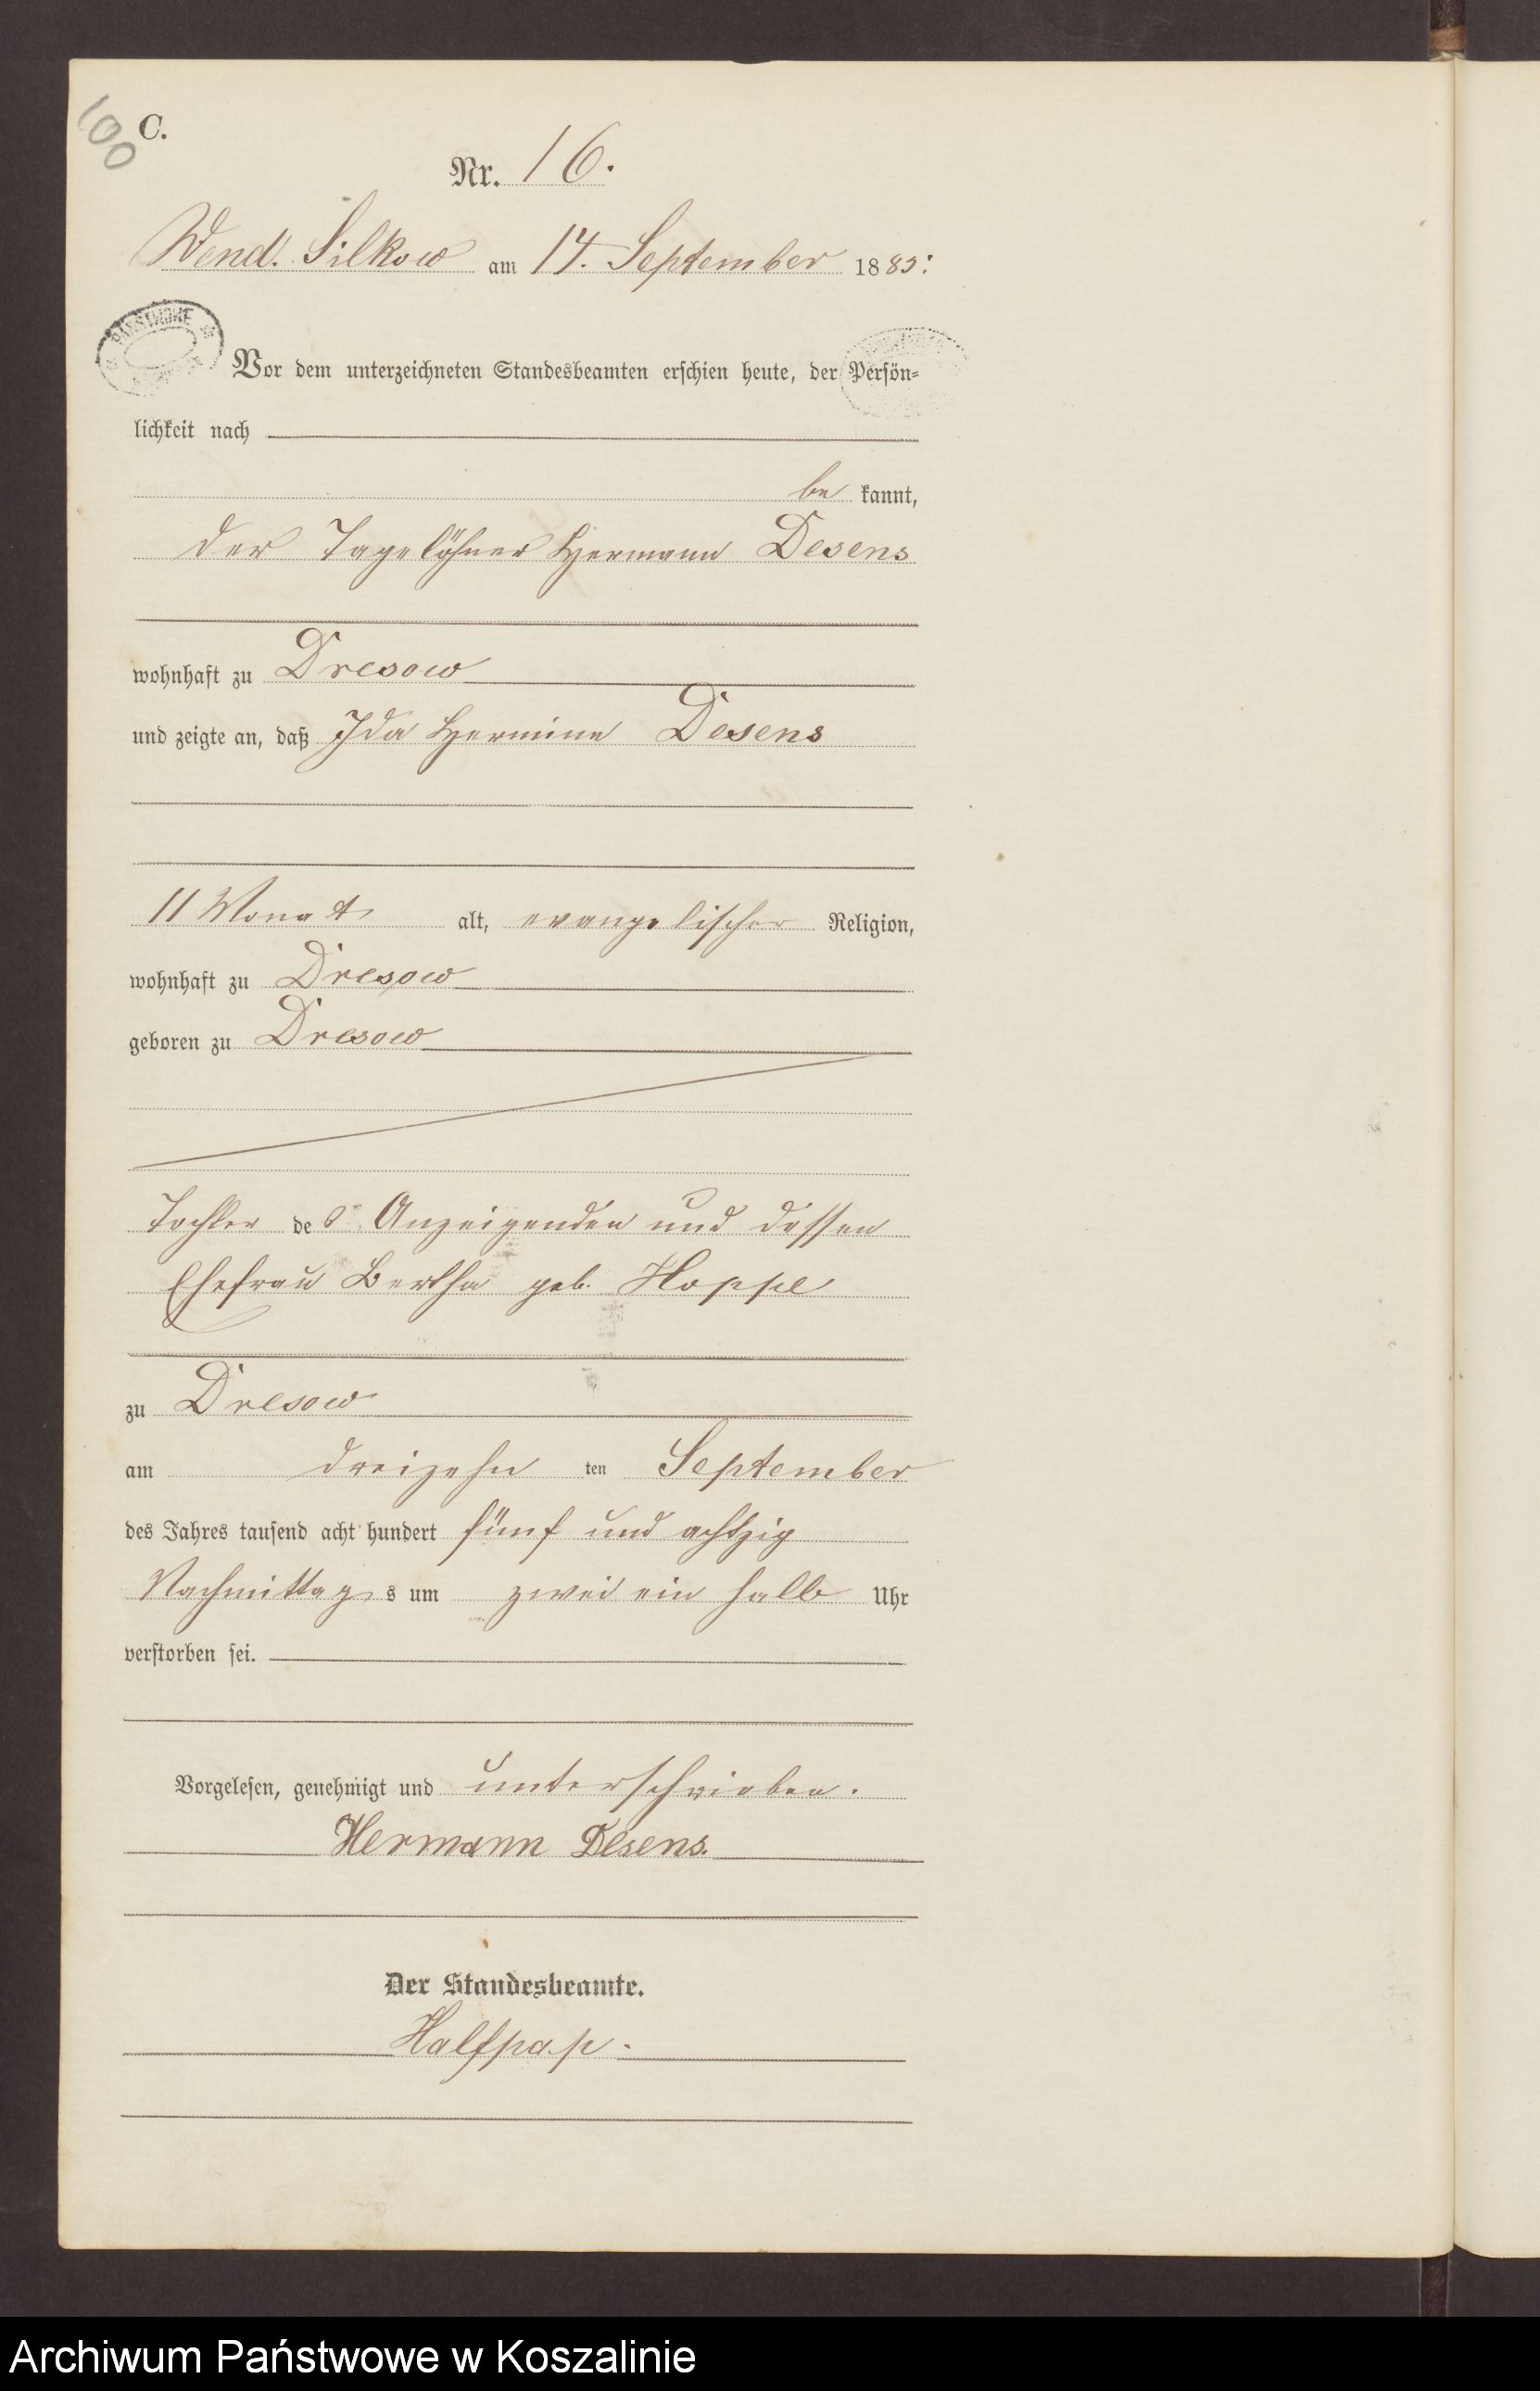 100
C.
Nr. 16.
Wend. Silkow am 14. September 1885.
PAŃSTWOWE
Vor dem unterzeichneten Standesbeamten erschien heute, der Persön-
lichkeit nach
be kannt,
der Tagelöhner Hermann Desens
wohnhaft zu Dresow
und zeigte an, daß Ida Hermine Desens
11 Monat alt, evangelischer Religion,
wohnhaft zu Dresow
geboren zu Dresow
Tochter des Anzeigenden und dessen
Ehefrau Bertha geb. Hoppe
zu Dresow
am dreizehn ten September
des Jahres tausend acht hundert fünf und achtzig
Nachmittag s um zwei ein halb Uhr
verstorben sei.
Vorgelesen, genehmigt und unterschrieben.
Hermann Desens.
Der Standesbeamte.
Halfpap.
Archiwum Państwowe w Koszalinie